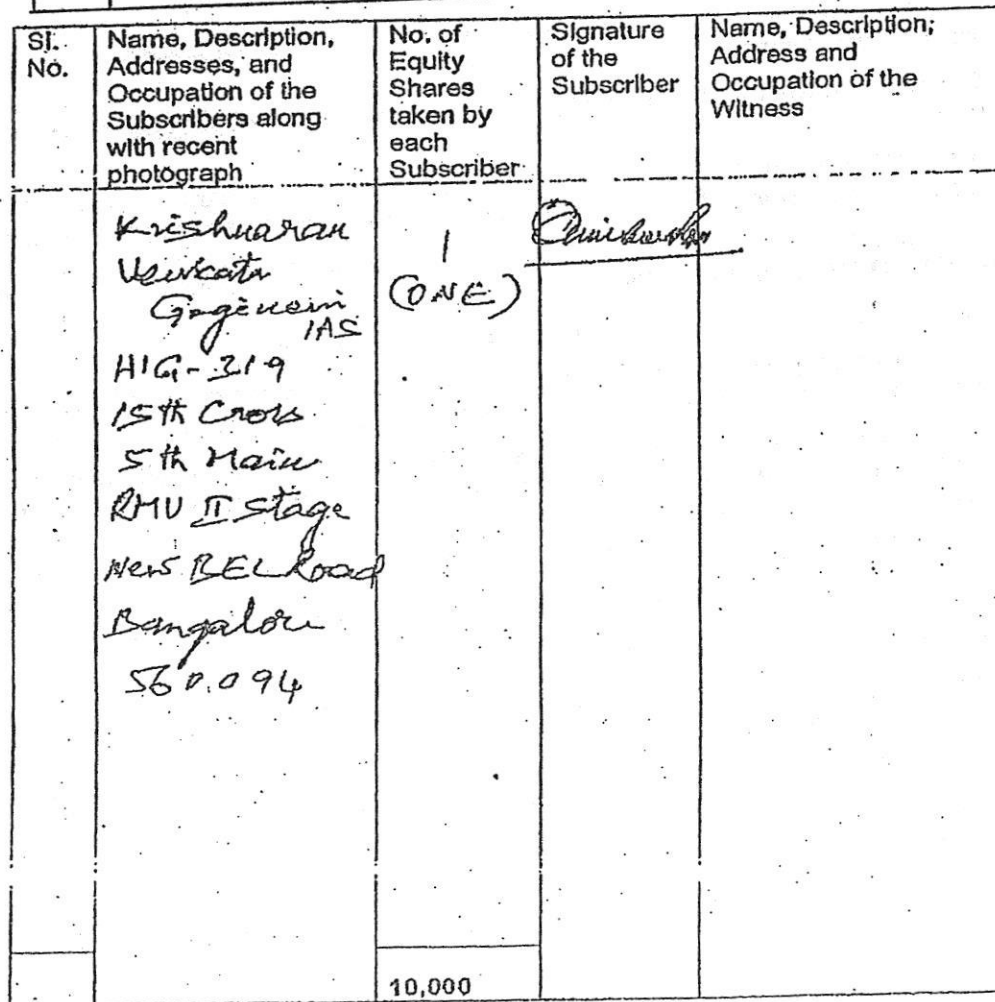 Sl. No.
Name, Description, Addresses, and Occupation of the Subscribers along with recent photograph
No. of Equity Shares taken by each Subscriber
Signature of the Subscriber
Name, Description; Address and Occupation of the Witness
Krishnaran
Venkata
IAS
HIG-319
15th Cross
5th Main
RMV II Stage
New BEL Road
Bangalore
560.094
1
(ONE)
10,000